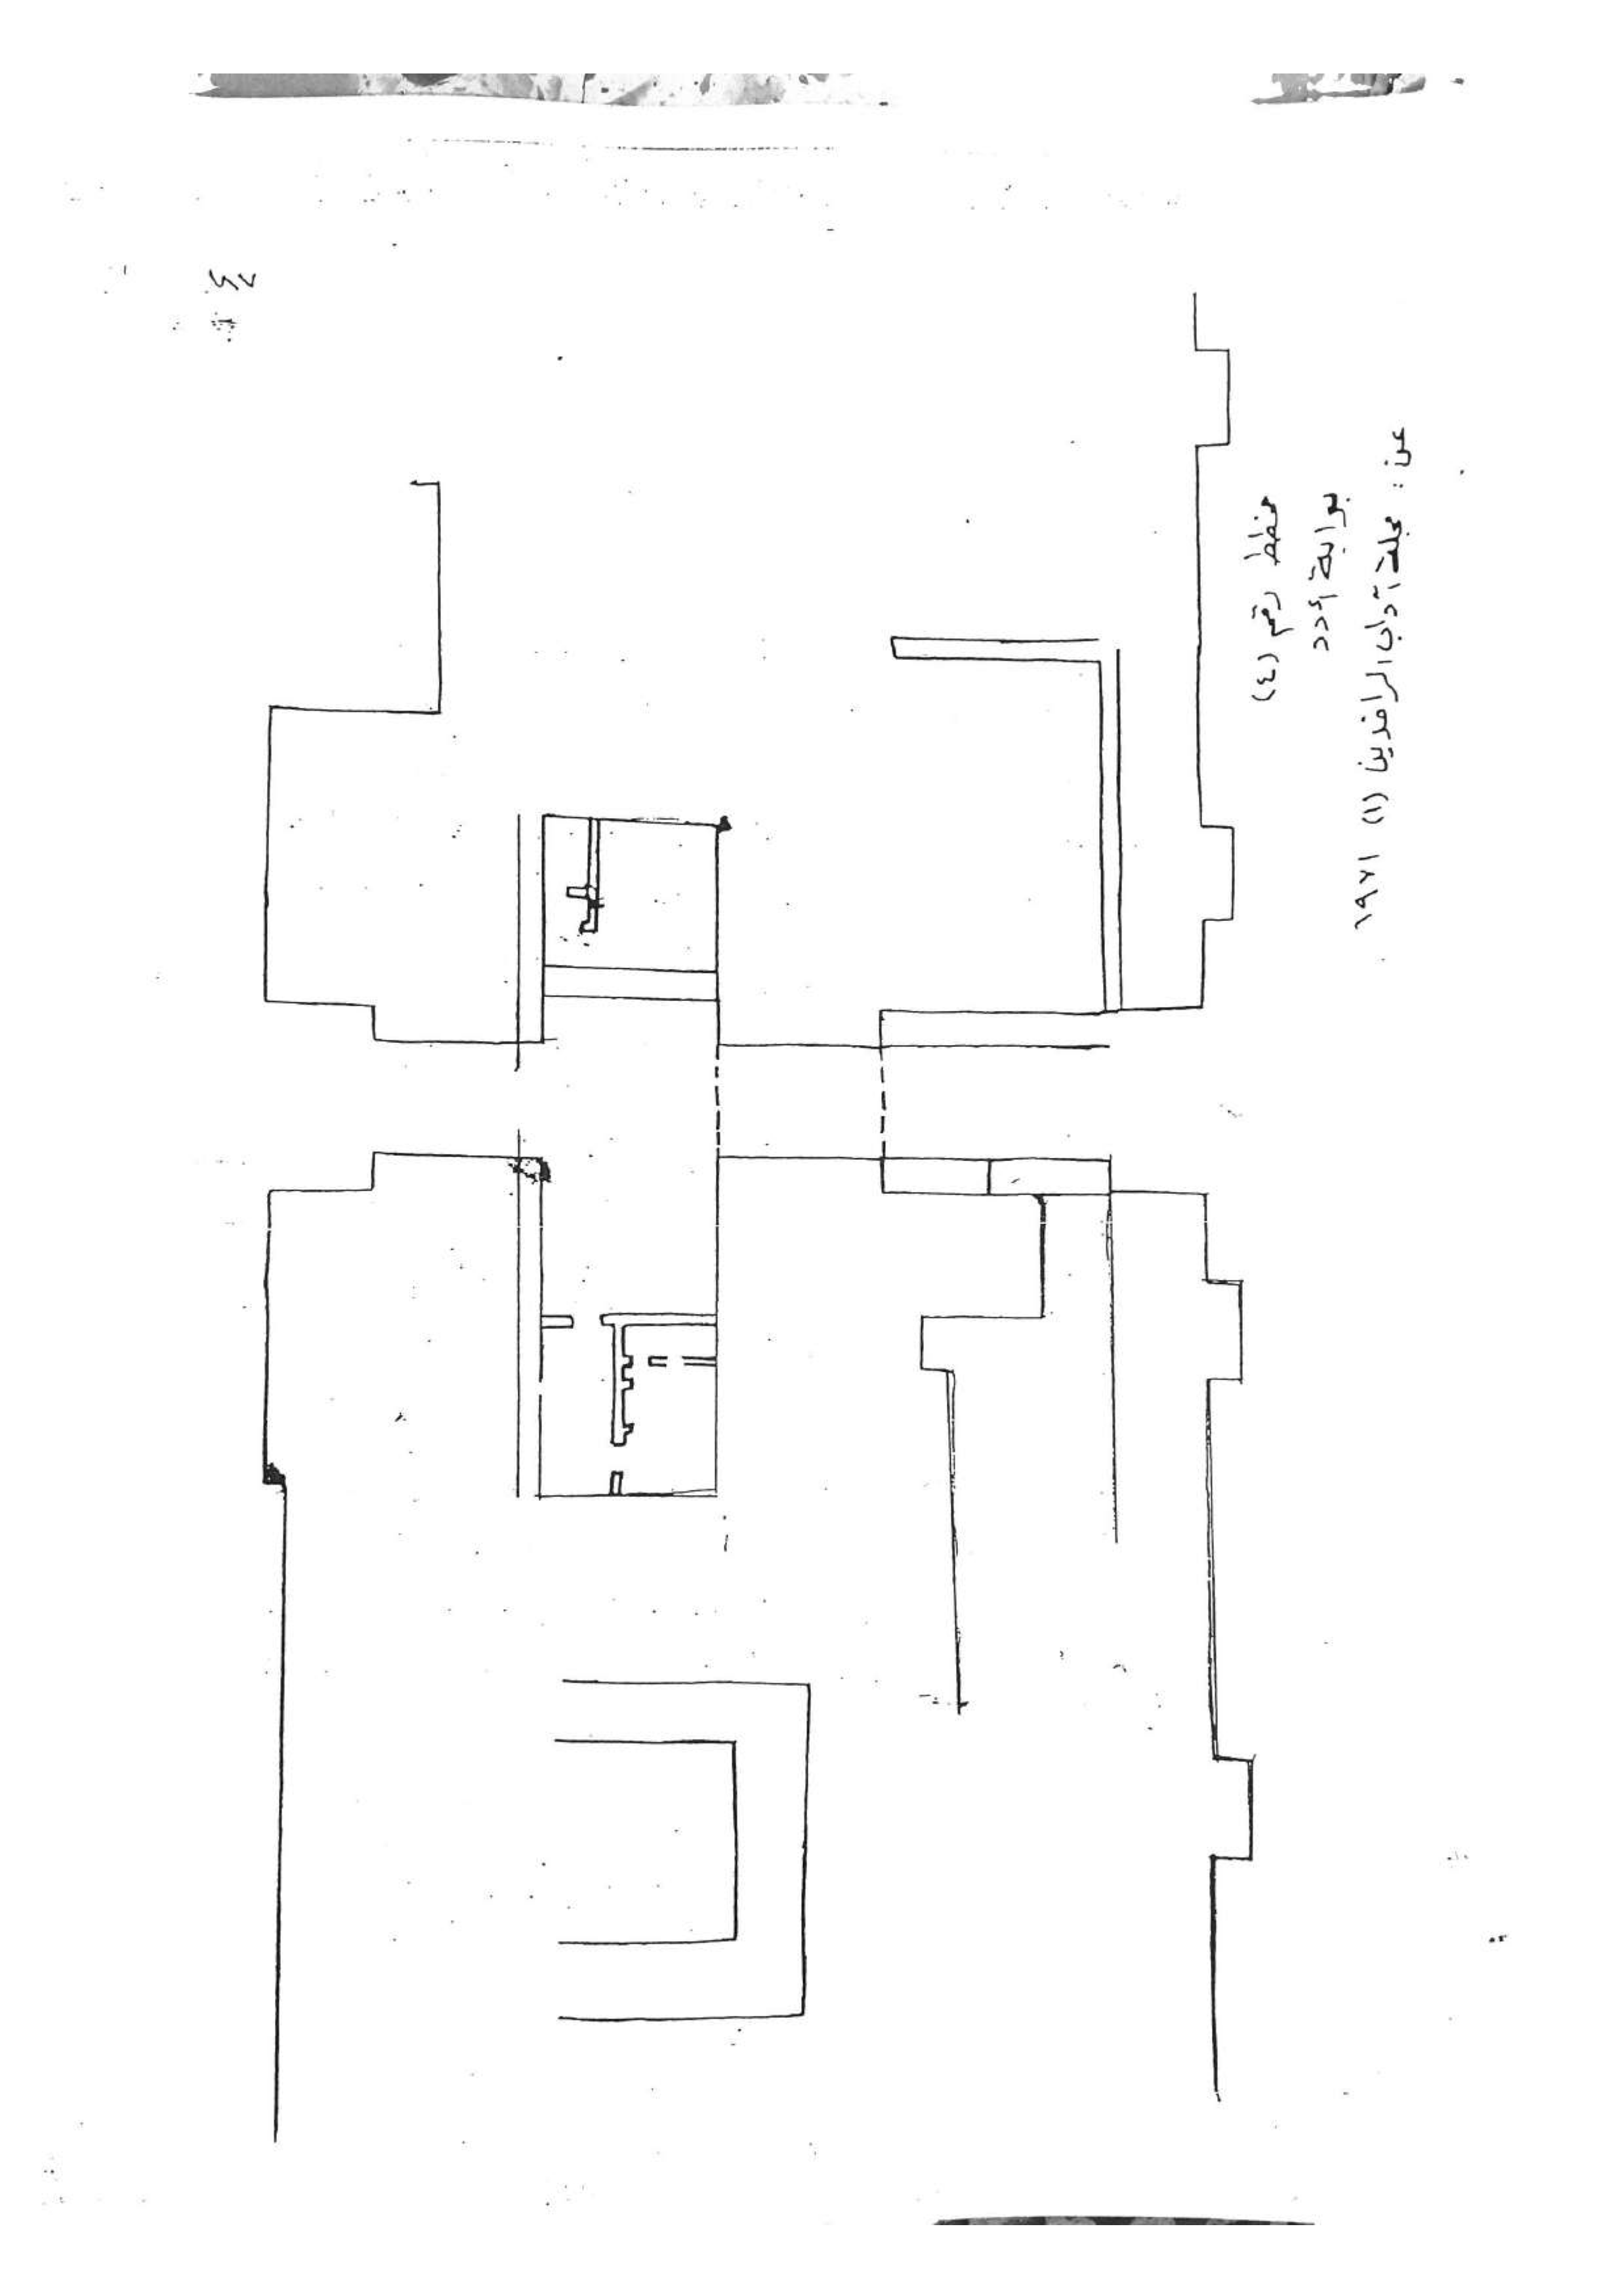 مخطط رقم (٤)
بوابة أدد
عن: مجلة آداب الرافدين (١) ١٩٧١